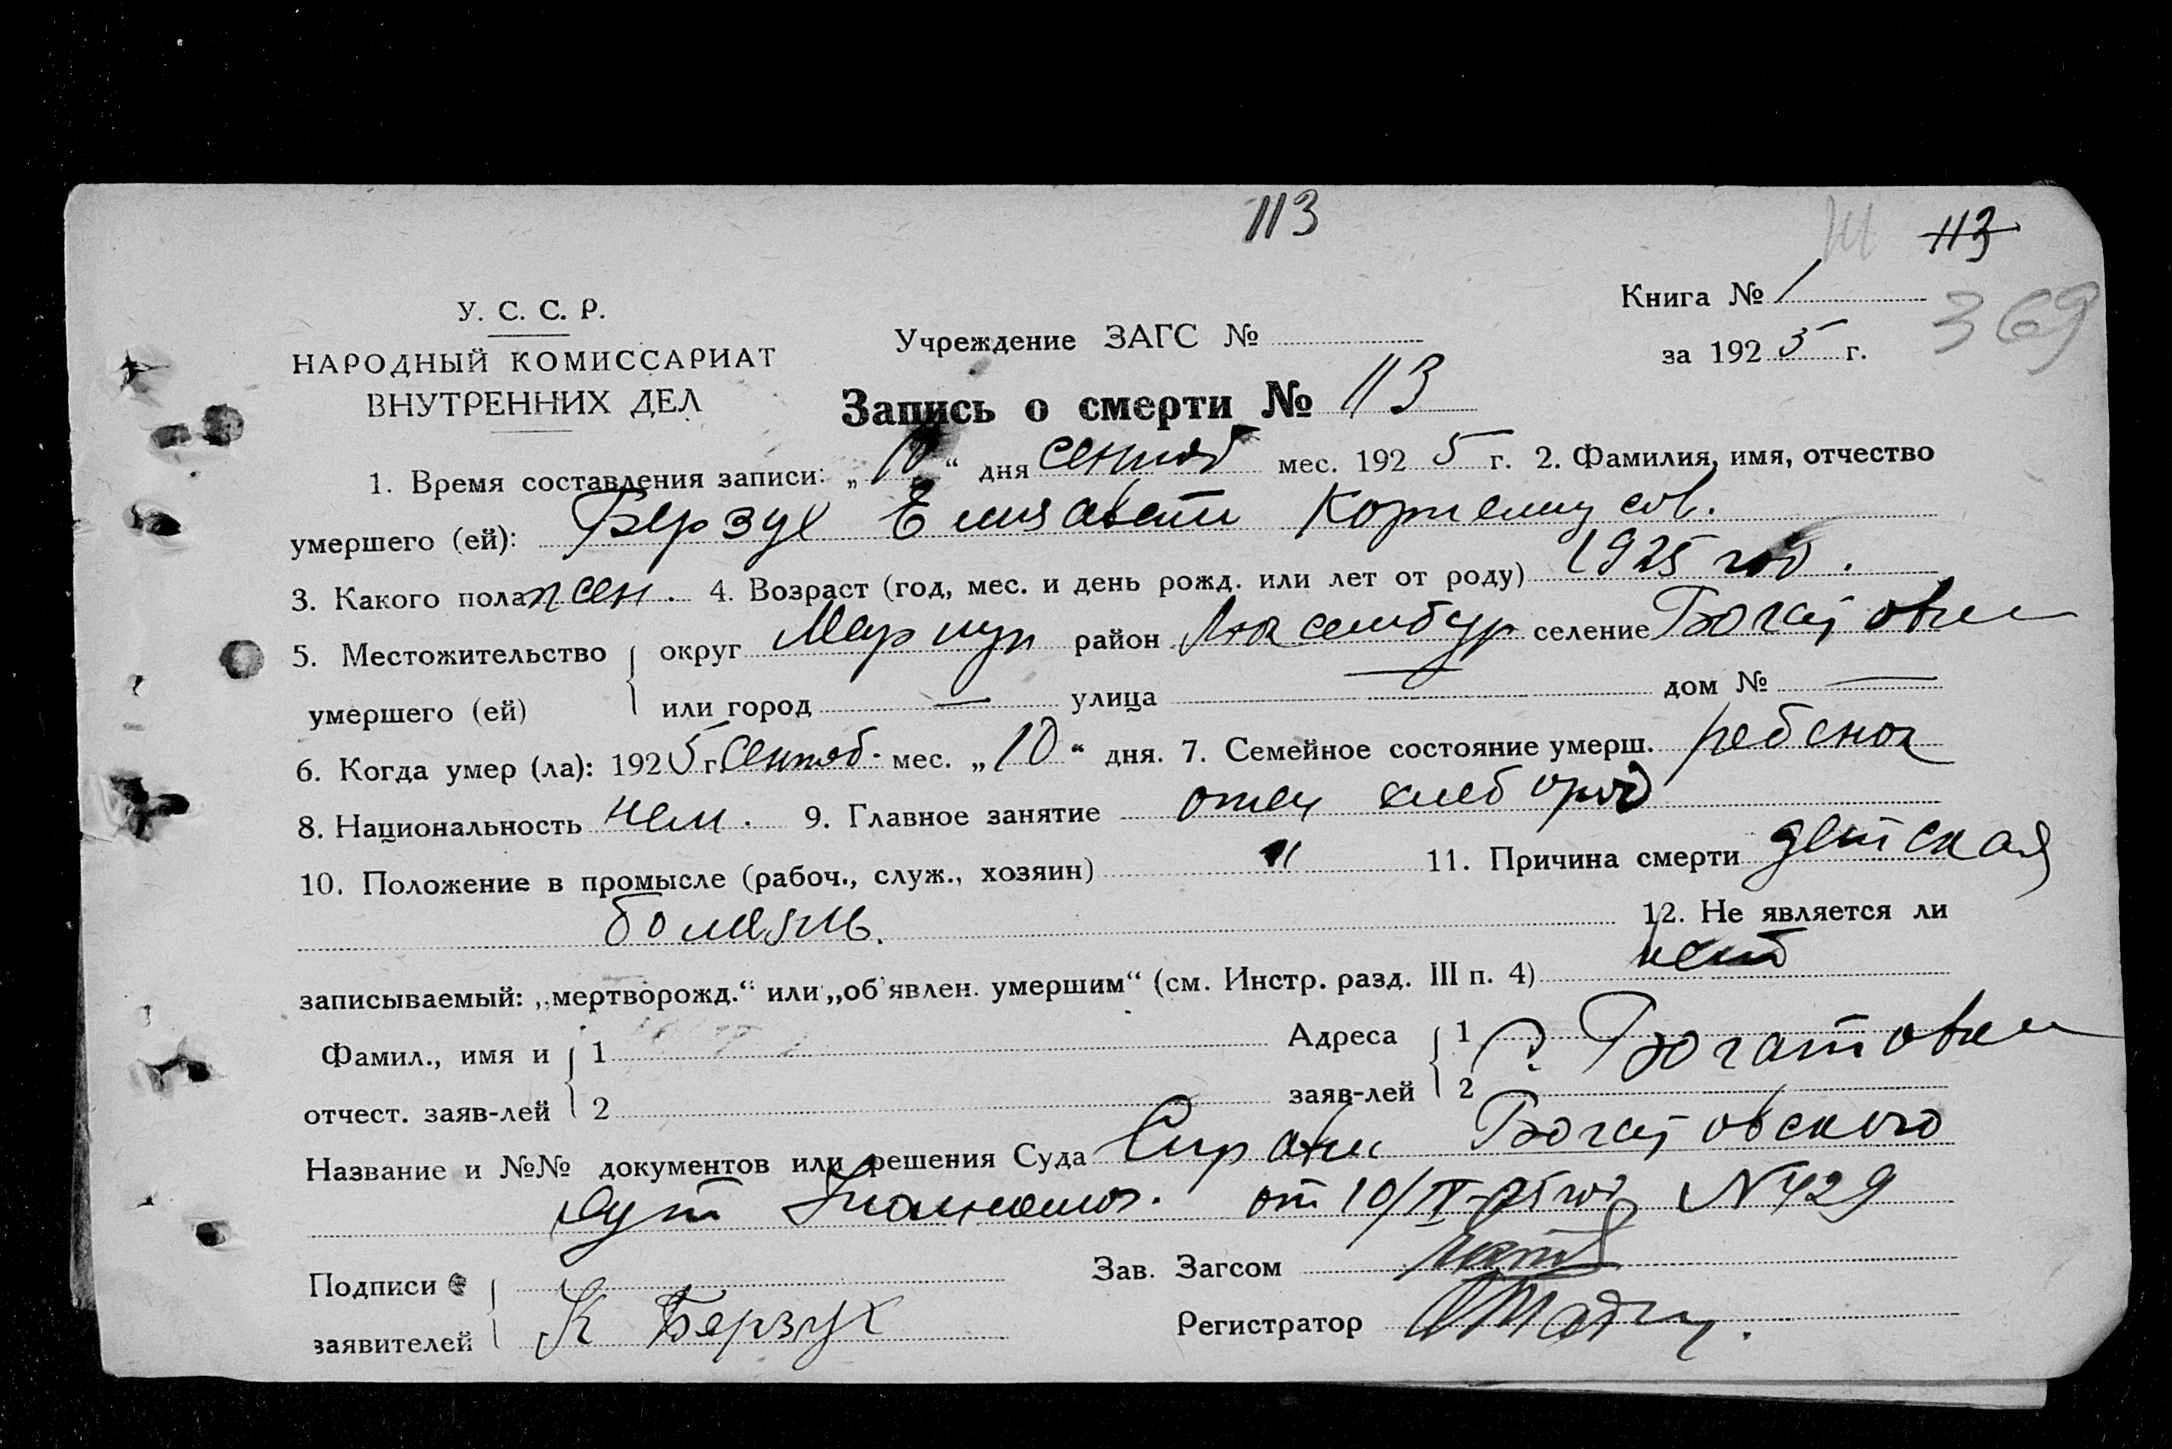 113
113
Книга № 1
369
У. С. С. Р.
Учреждение ЗАГС №
за 1925 г.
НАРОДНЫЙ КОМИССАРИАТ
ВНУТРЕННИХ ДЕЛ
Запись о смерти № 113
1. Время составления записи: „10“ дня сентяб мес. 1925 г. 2. Фамилия, имя, отчество
умершего (ей): Бергзух Елизавети Корнелиусов.
3. Какого пола жен. 4. Возраст (год, мес. и день рожд. или лет от роду) 1925 год.
5. Местожительство округ Мариуп район Люксембур селение Богатовки
умершего (ей) или город — улица — дом № —
6. Когда умер (ла): 1925 г. Сентяб. мес. „10“ дня. 7. Семейное состояние умерш. ребенок
8. Национальность нем. 9. Главное занятие отец хлебороб
10. Положение в промысле (рабоч., служ., хозяин) " 11. Причина смерти детская
болезнь. 12. Не является ли
записываемый: „мертворожд.“ или „об'явлен. умершим“ (см. Инстр. разд. III п. 4) нет
Фамил., имя и 1 Адреса 1 с. Богатовки
отчест. заяв-лей 2 заяв-лей 2
Название и №№ документов или решения Суда Справки Богатовского
от 10/IX-25 год N 429
Подписи Зав. Загсом
заявителей К Бергзух Регистратор